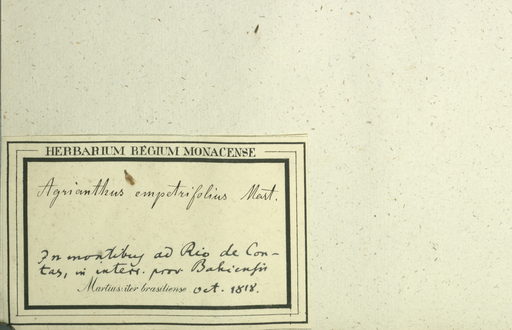 HERBARIUM REGIUM MONACENSE
Agrianthus empetrifolius Mart.
In montibus ad Rio de Con-
tas, in interr. prov Bahiensis
Martius: iter brasiliense Oct. 1818.